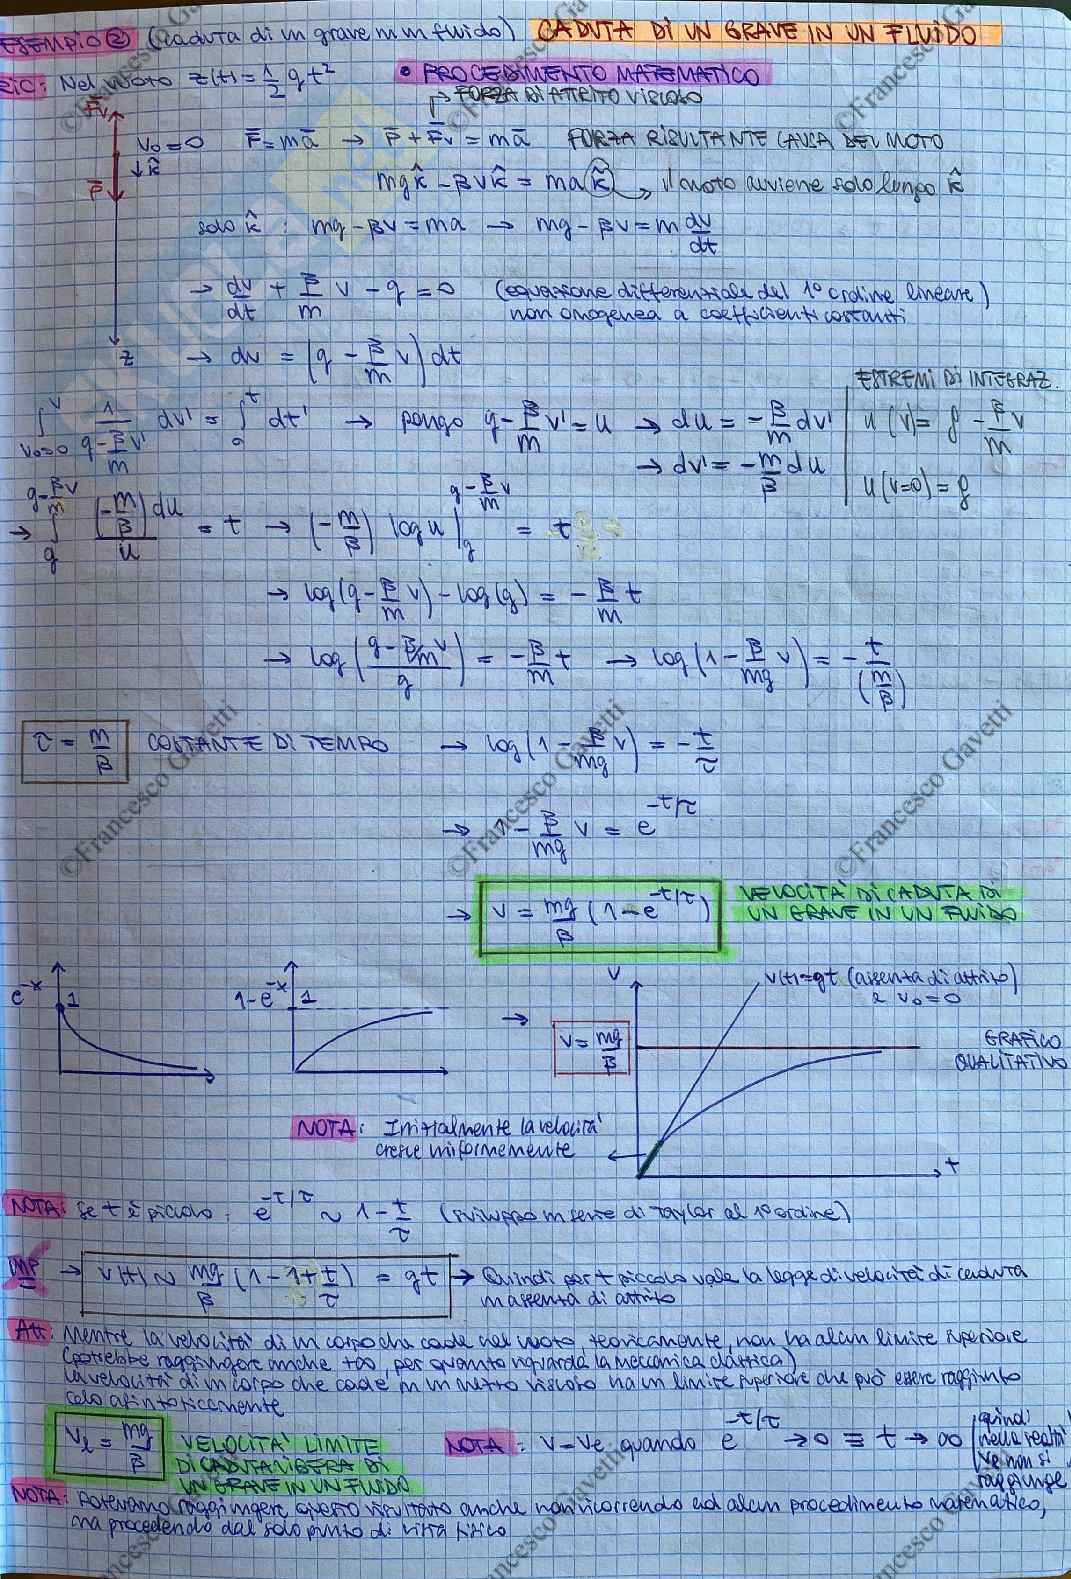 ESEMPIO ② (caduta di un grave in un fluido) CADUTA DI UN GRAVE IN UN FLUIDO
RIC: Nel vuoto z(t) = 1/2 g t² • PROCEDIMENTO MATEMATICO
→ FORZA DI ATTRITO VISCOSO
F̄v
v₀=0 F̄ = mā → P̄ + F̄v = mā FORZA RISULTANTE CAUSA DEL MOTO
↓k̂
P̄
mg k̂ - βv k̂ = ma k̂ → il moto avviene solo lungo k̂
solo k̂ : mg - βv = ma → mg - βv = m dv/dt
→ dv/dt + β/m v - g = 0 (equazione differenziale del 1° ordine lineare)
non omogenea a coefficienti costanti
z → dv = (g - β/m v) dt
ESTREMI DI INTEGRAZ.
∫_{v₀=0}^{v} 1/(g - β/m v') dv' = ∫_0^t dt' → pongo g - β/m v' = u → du = -β/m dv'
u(v) = g - β/m v
→ dv' = -m/β du
u(v=0) = g
→ ∫_g^{g-β/m v} (-m/β) du / u = t → (-m/β) log u |_g^{g-β/m v} = t
→ log(g - β/m v) - log(g) = -β/m t
→ log((g - β/m v)/g) = -β/m t → log(1 - β/mg v) = - t/(m/β)
τ = m/β COSTANTE DI TEMPO → log(1 - β/mg v) = - t/τ
→ 1 - β/mg v = e^{-t/τ}
→ v = mg/β (1 - e^{-t/τ}) VELOCITA' DI CADUTA DI
UN GRAVE IN UN FLUIDO
e^{-x} 1
1-e^{-x} 1
→
v
v(t)=gt (assenza di attrito)
e v₀=0
v = mg/β
GRAFICO
QUALITATIVO
t
NOTA: Inizialmente la velocità
cresce uniformemente
NOTA: Se t è piccolo: e^{-t/τ} ~ 1 - t/τ (sviluppo in serie di Taylor al 1° ordine)
IMP → v(t) ~ mg/β (1 - 1 + t/τ) = gt → Quindi per t piccolo vale la legge di velocità di caduta
in assenza di attrito
Att: Mentre la velocità di un corpo che cade nel vuoto, teoricamente, non ha alcun limite superiore
(potrebbe raggiungere anche +∞, per quanto riguarda la meccanica classica)
la velocità di un corpo che cade in un mezzo viscoso ha un limite superiore che può essere raggiunto
solo asintoticamente
v_l = mg/β VELOCITA' LIMITE
DI CADUTA LIBERA DI
UN GRAVE IN UN FLUIDO
NOTA: v=v_l quando e^{-t/τ} → 0 ≡ t → ∞ (quindi
nella realtà
v_l non si
raggiunge
NOTA: Potevamo raggiungere questo risultato anche non ricorrendo ad alcun procedimento matematico,
ma procedendo dal solo punto di vista fisico
©Francesco Gavetti
©Francesco Gavetti
©Francesco Gavetti